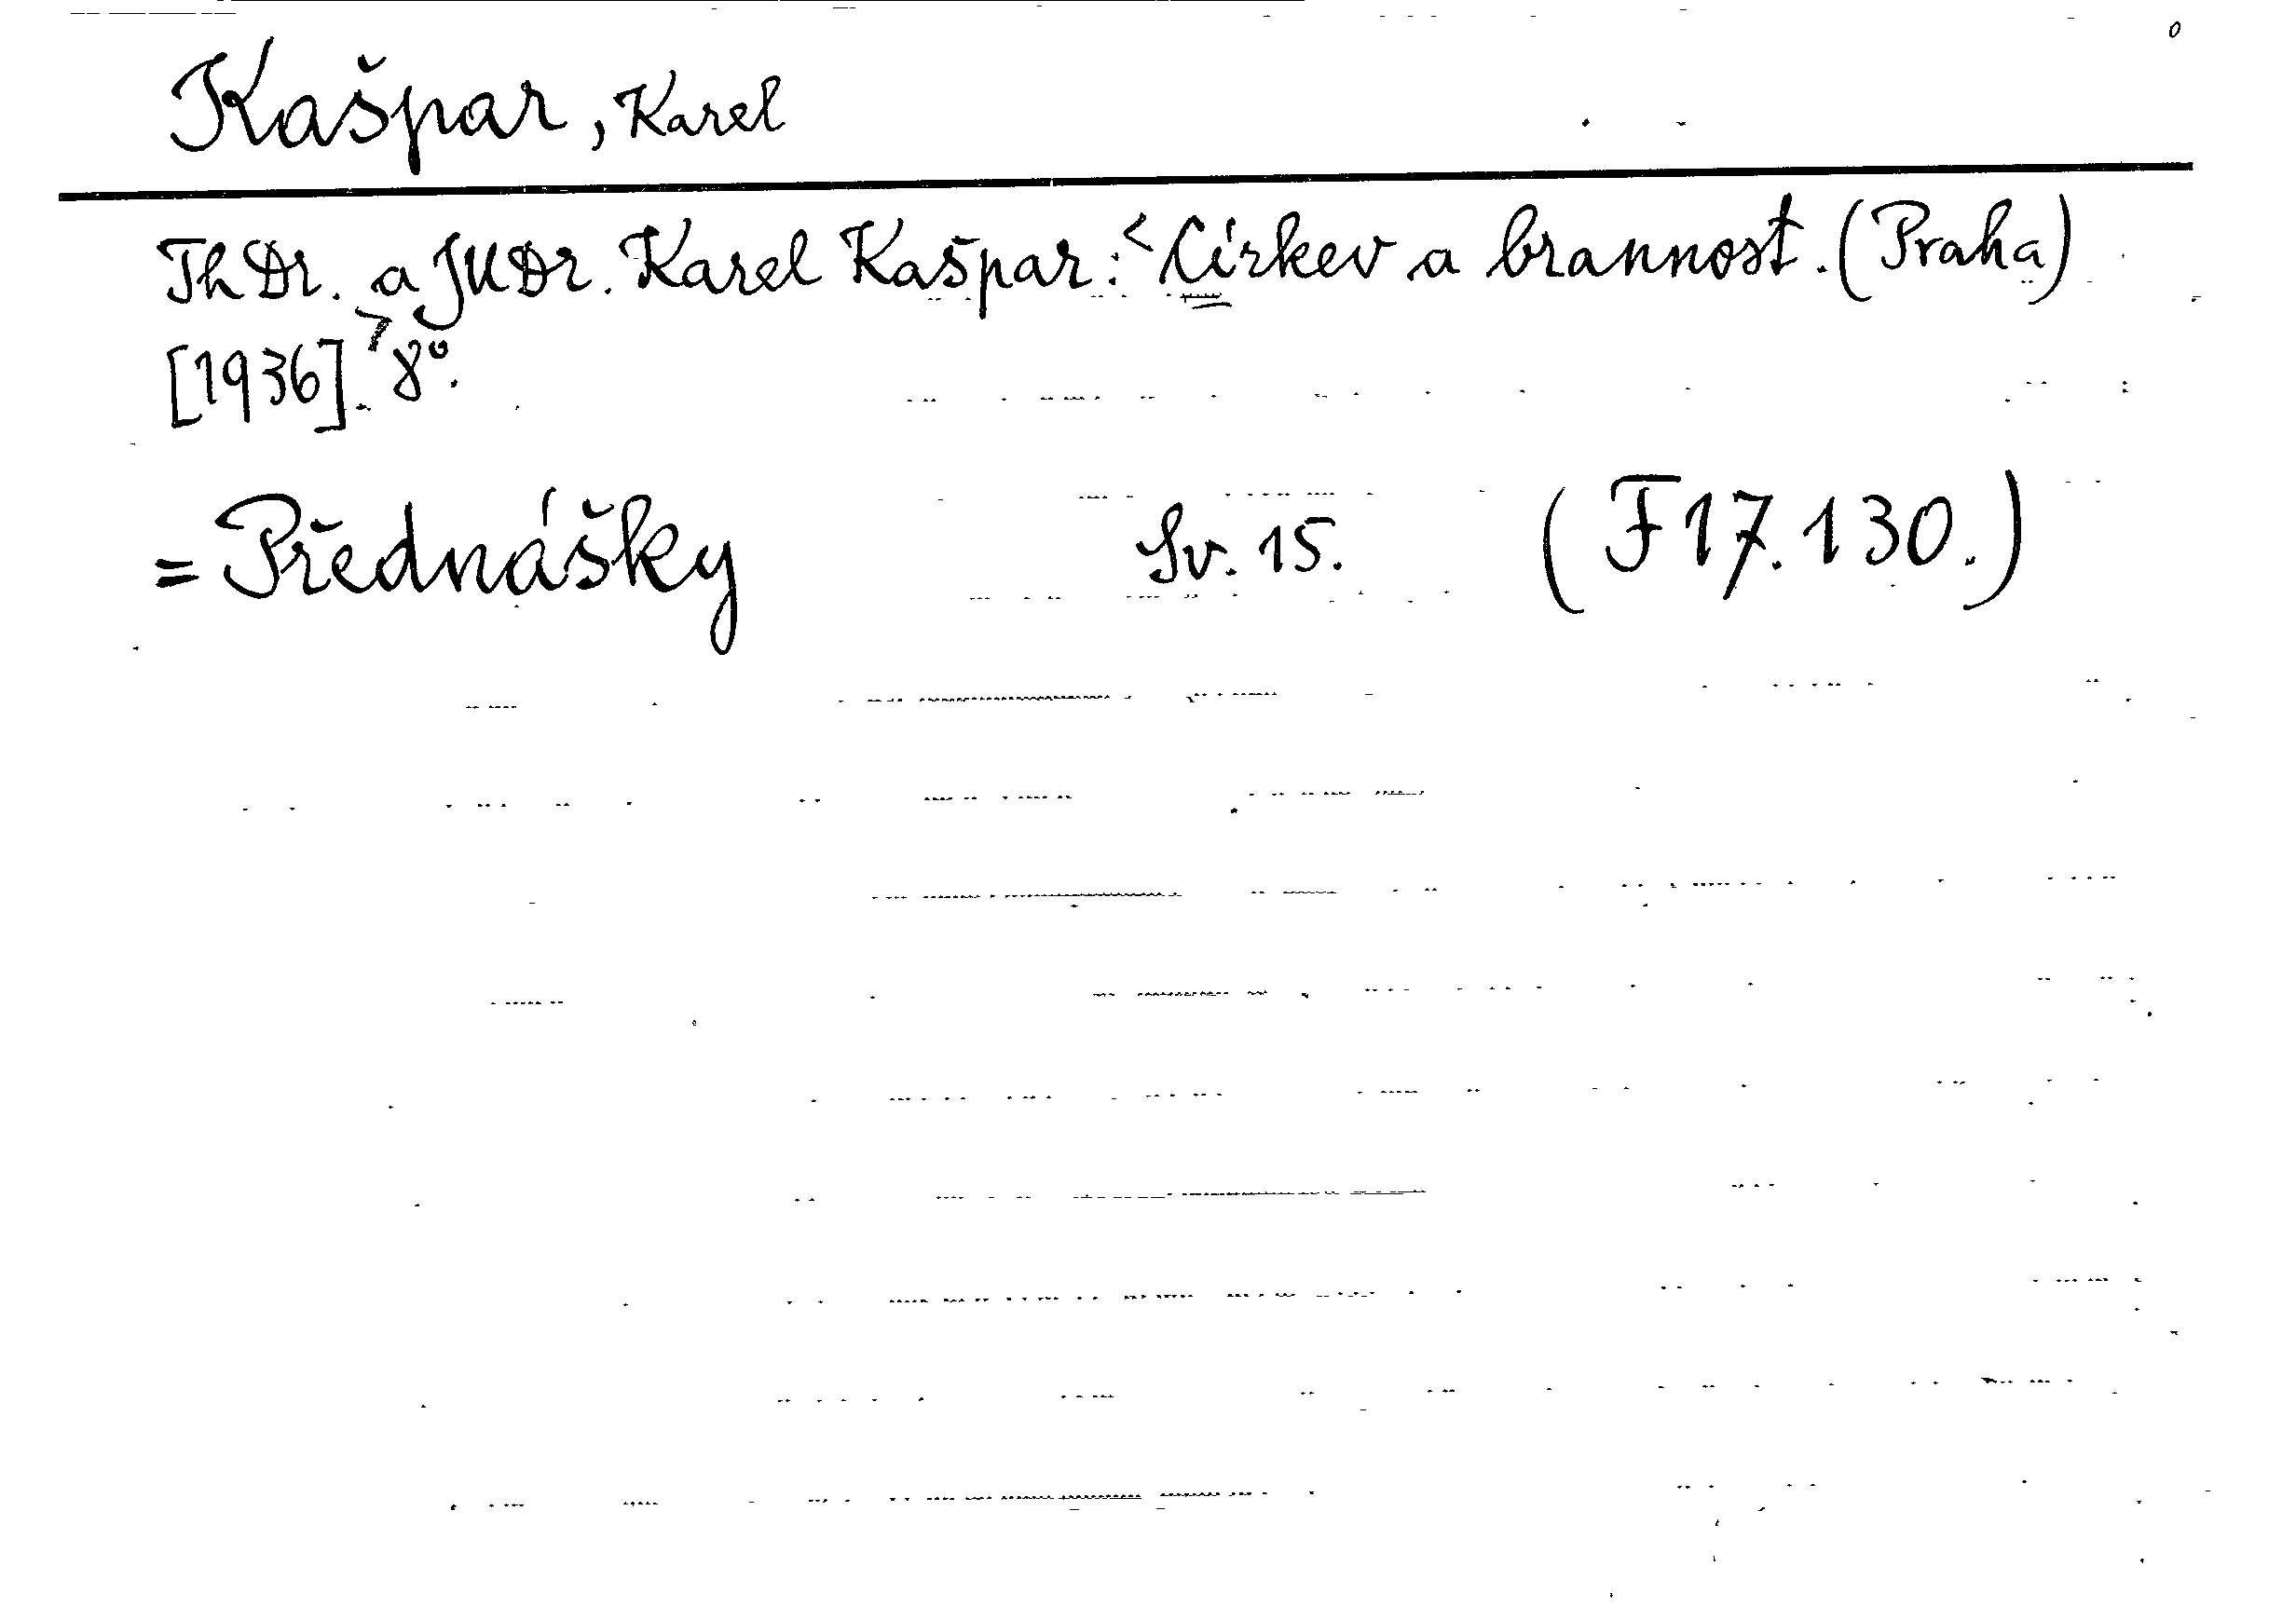 Kašpar, Karel
ThDr. a JUDr. Karel Kašpar: <Církev a brannost. (Praha)
[1936].> 8°.
= Přednášky Sv. 15. (F 17.130.)